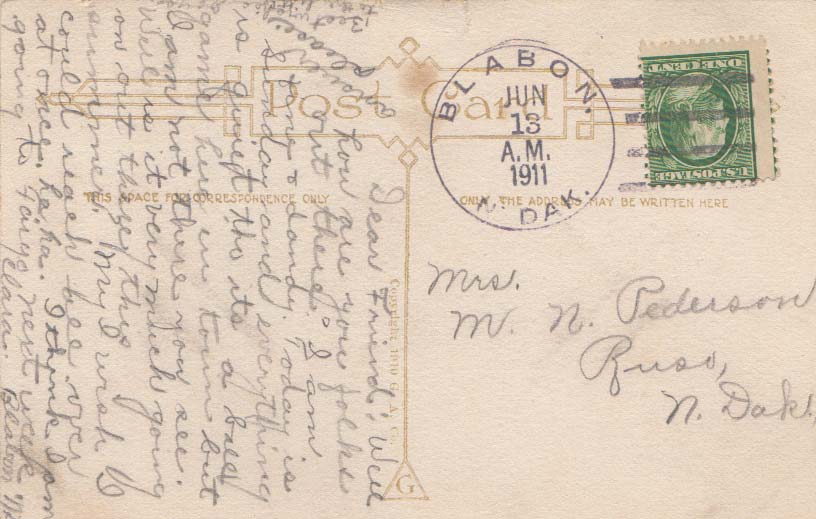 Post Card
THIS SPACE FOR CORRESPONDENCE ONLY
ONLY THE ADDRESS MAY BE WRITTEN HERE
BLABON.
JUN
13
A.M.
1911
N. DAK.
ONE CENT
U.S. POSTAGE
Mrs.
M. N. Pederson
Ruso,
N. Dak.
Dear Friend: Well
how are you folks
out there? I am
fine & dandy. Today is
Sunday and everything
is quiet tho its a ball
game here in town but
I am not there you see.
Well is it very much going
on out they this
summer. My I wish I
could reach bee over
at once. ha.ha. I think I am
going to Fargo next week
Clara. Blabon
please
Best
Copyright 1910 G. A. Co.
G